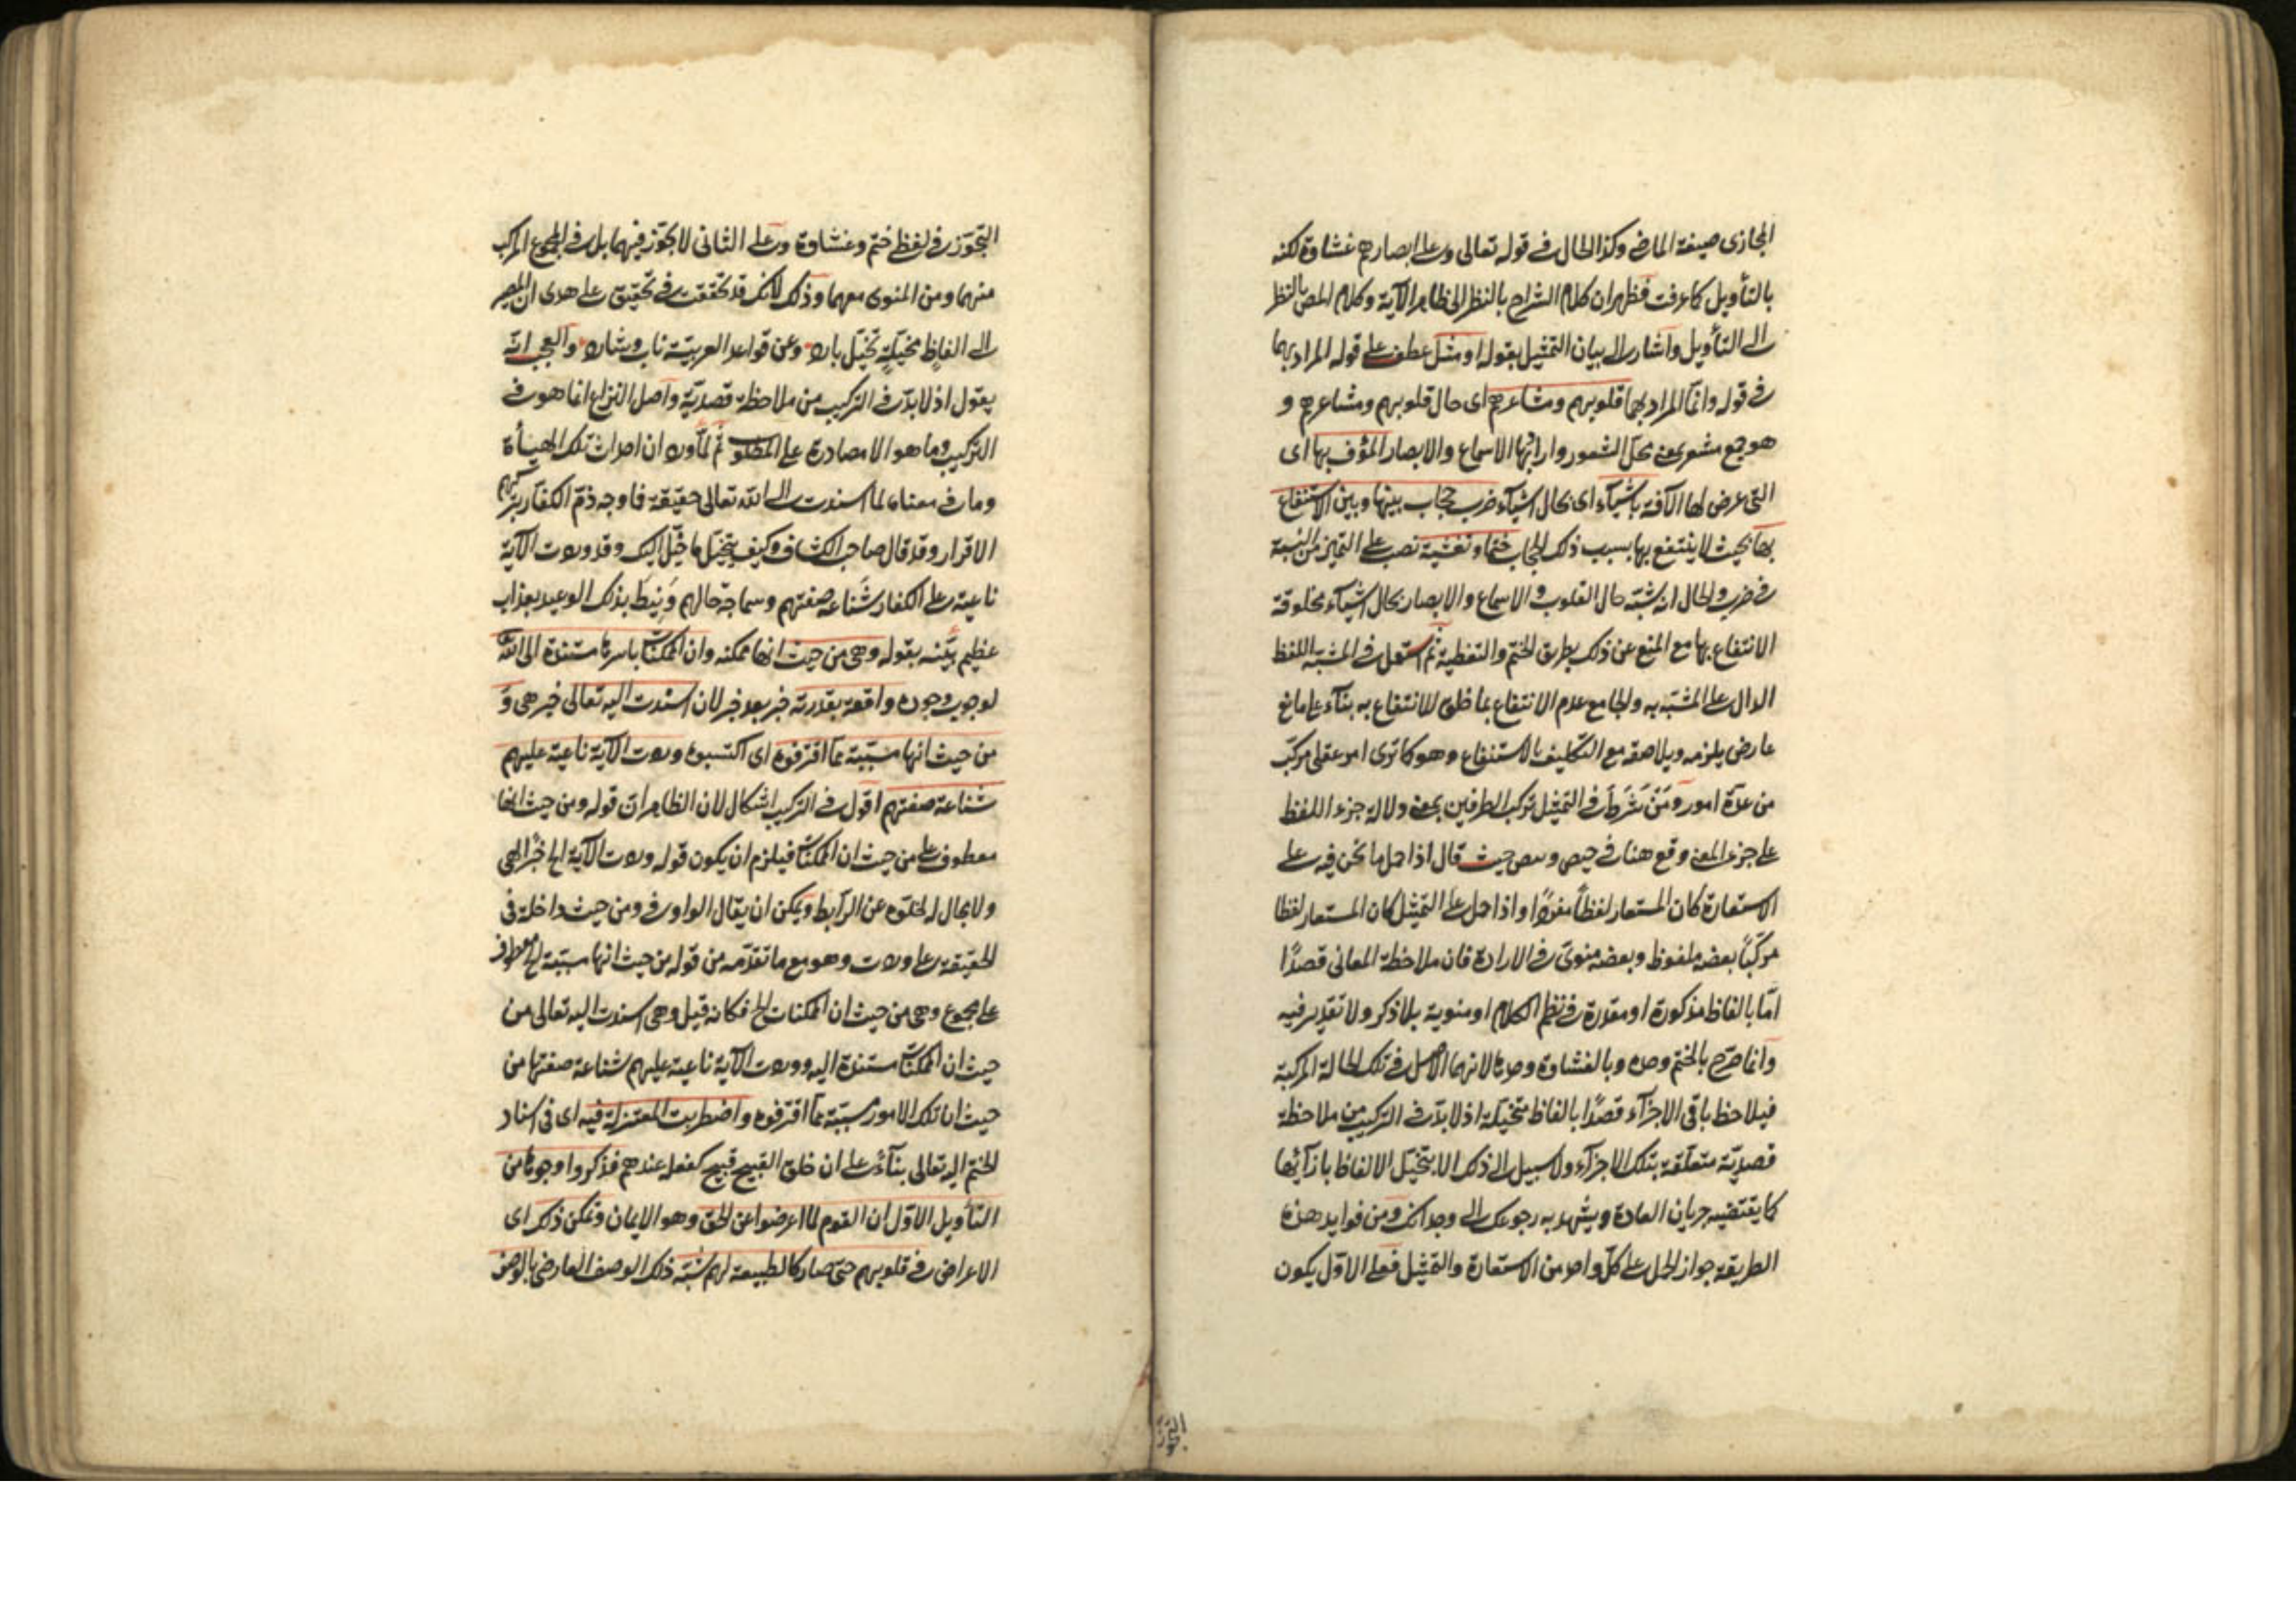 المجازى صيغة الماضى وكذا الحال فى قوله تعالى وعلى ابصارهم غشاوة لكنه
بالتأويل كما عرفت فظهر ان كلام الشراح بالنظر الى ظاهر الآية وكلام المص بالنظر
الى التأويل واشار الى بيان التمثيل بقوله او مثل عطف على قوله المراد بهما
فى قوله وانما المراد بهما قلوبهم ومشاعرهم اى حال قلوبهم ومشاعرهم و
هو جمع مشعر بمعنى محل الشعور واراد بها الاسماع والابصار المؤف بها اى
التى عرض لها الآفة باشياء اى بحال اشياء ضرب حجاب بينها وبين الاستنفاع
بها بحيث لا ينتفع بها بسبب ذلك الحجاب ختما وتغشية نصب على التميز من النسبة
فى ضرب والحال انه شبه حال القلوب والاسماع والابصار بحال اشياء مخلوقة
الانتفاع بها مع المنع عن ذلك بطريق الختم والتغطية ثم استعمل فى المشبه اللفظ
الدال على المشبه به والجامع عدم الانتفاع بما خلق للانتفاع به بناء على مانع
عارض يلزمه ويلاصقه مع التكليف بالاستنفاع وهو كما ترى امر عقلى مركب
من عدة امور ومن شرط فى التمثيل تركب الطرفين بمعنى دلالة جزء اللفظ
على جزء المعنى وقع هنا فى حيص وبيص حيث قال اذا حمل ما نحن فيه على
الاستعارة كان المستعار لفظا مفردا واذا حمل على التمثيل كان المستعار لفظا
مركبا بعضه ملفوظ وبعضه منوى فى الارادة فان ملاحظة المعانى قصدا
اما بالفاظ مذكورة او مقدرة فى نظم الكلام او منوية بلا ذكر ولا تقدير فيه
وانما صرح بالختم وحده وبالغشاوة وحدها لانهما الاصل فى تلك الحالة المركبة
فيلاحظ باقى الاجزاء قصدا بالفاظ متخيلة اذ لا بد فى التركيب من ملاحظة
قصدية متعلقة بتلك الاجزاء ولا سبيل الى ذلك الا بتخيل الالفاظ بازائها
كما يقتضيه جريان العادة ويشهد به رجوعك الى وجدانك ومن فوايد هذه
الطريقة جواز الحمل على كل واحد من الاستعارة والتمثيل فعلى الاول يكون
التجوز
التجوز فى لفظ ختم وغشاوة وعلى الثانى لا تجوز فيهما بل فى المجموع المركب
منهما ومن المنوى معهما وذلك لانك قد تحققت فى تحقيق على هدى ان المصير
الى الفاظ مخيلة تخيل بارد وعن قواعد العربية ناب وشارد والعجب انه
يقول اذ لا بد فى التركيب من ملاحظة قصدية واصل النزاع انما هو فى
التركيب وما هو الا مصادرة على المطلوب ثم لما ورد ان احداث تلك الهيأة
وما فى معناه لما اسندت الى الله تعالى حقيقة فما وجه ذم الكفار بتركهم
الاقرار وقد قال صاحب الكشاف وكيف يتخيل ما خيل اليك وقد وردت الآية
ناعية على الكفار شناعة صفتهم وسماجة حالهم ونيط بذلك الوعيد بعذاب
عظيم بينه بقوله وهى من حيث انها ممكنة وان الممكنات باسرها مستندة الى الله
لوجوب وجوده واقعة بقدرته خبر بعد خبر لان اسندت اليه تعالى خبر هى و
من حيث انها مسببة مما اقترفوه اى اكتسبوه وردت الآية ناعية عليهم
شناعة صفتهم اقول فى التركيب اشكال لان الظاهر ان قوله ومن حيث انها
معطوف على من حيث ان الممكنات فيلزم ان يكون قوله وردت الآية الخ خبرا لهى
ولا مجال له لخلوه عن الرابط ويمكن ان يقال الواو فى ومن حيث داخلة فى
الحقيقة على وردت وهو مع ما تقدمه من قوله من حيث انها مسببة الخ معطوف
على مجموع وهى من حيث ان الممكنات الخ فكانه قيل وهى اسندت اليه تعالى من
حيث ان الممكنات مستندة اليه ووردت الآية ناعية عليهم شناعة صفتها من
حيث ان تلك الامور مسببة مما اقترفوه واضطربت المعتزلة فيه اى فى اسناد
الختم اليه تعالى بناء على ان خلق القبيح قبيح كفعله عندهم فذكروا وجوها من
التأويل الاول ان القوم لما اعرضوا عن الحق وهو الايمان وتمكن ذلك اى
الاعراض فى قلوبهم حتى صار كالطبيعة لهم شبه ذلك الوصف العارضى بالوصف